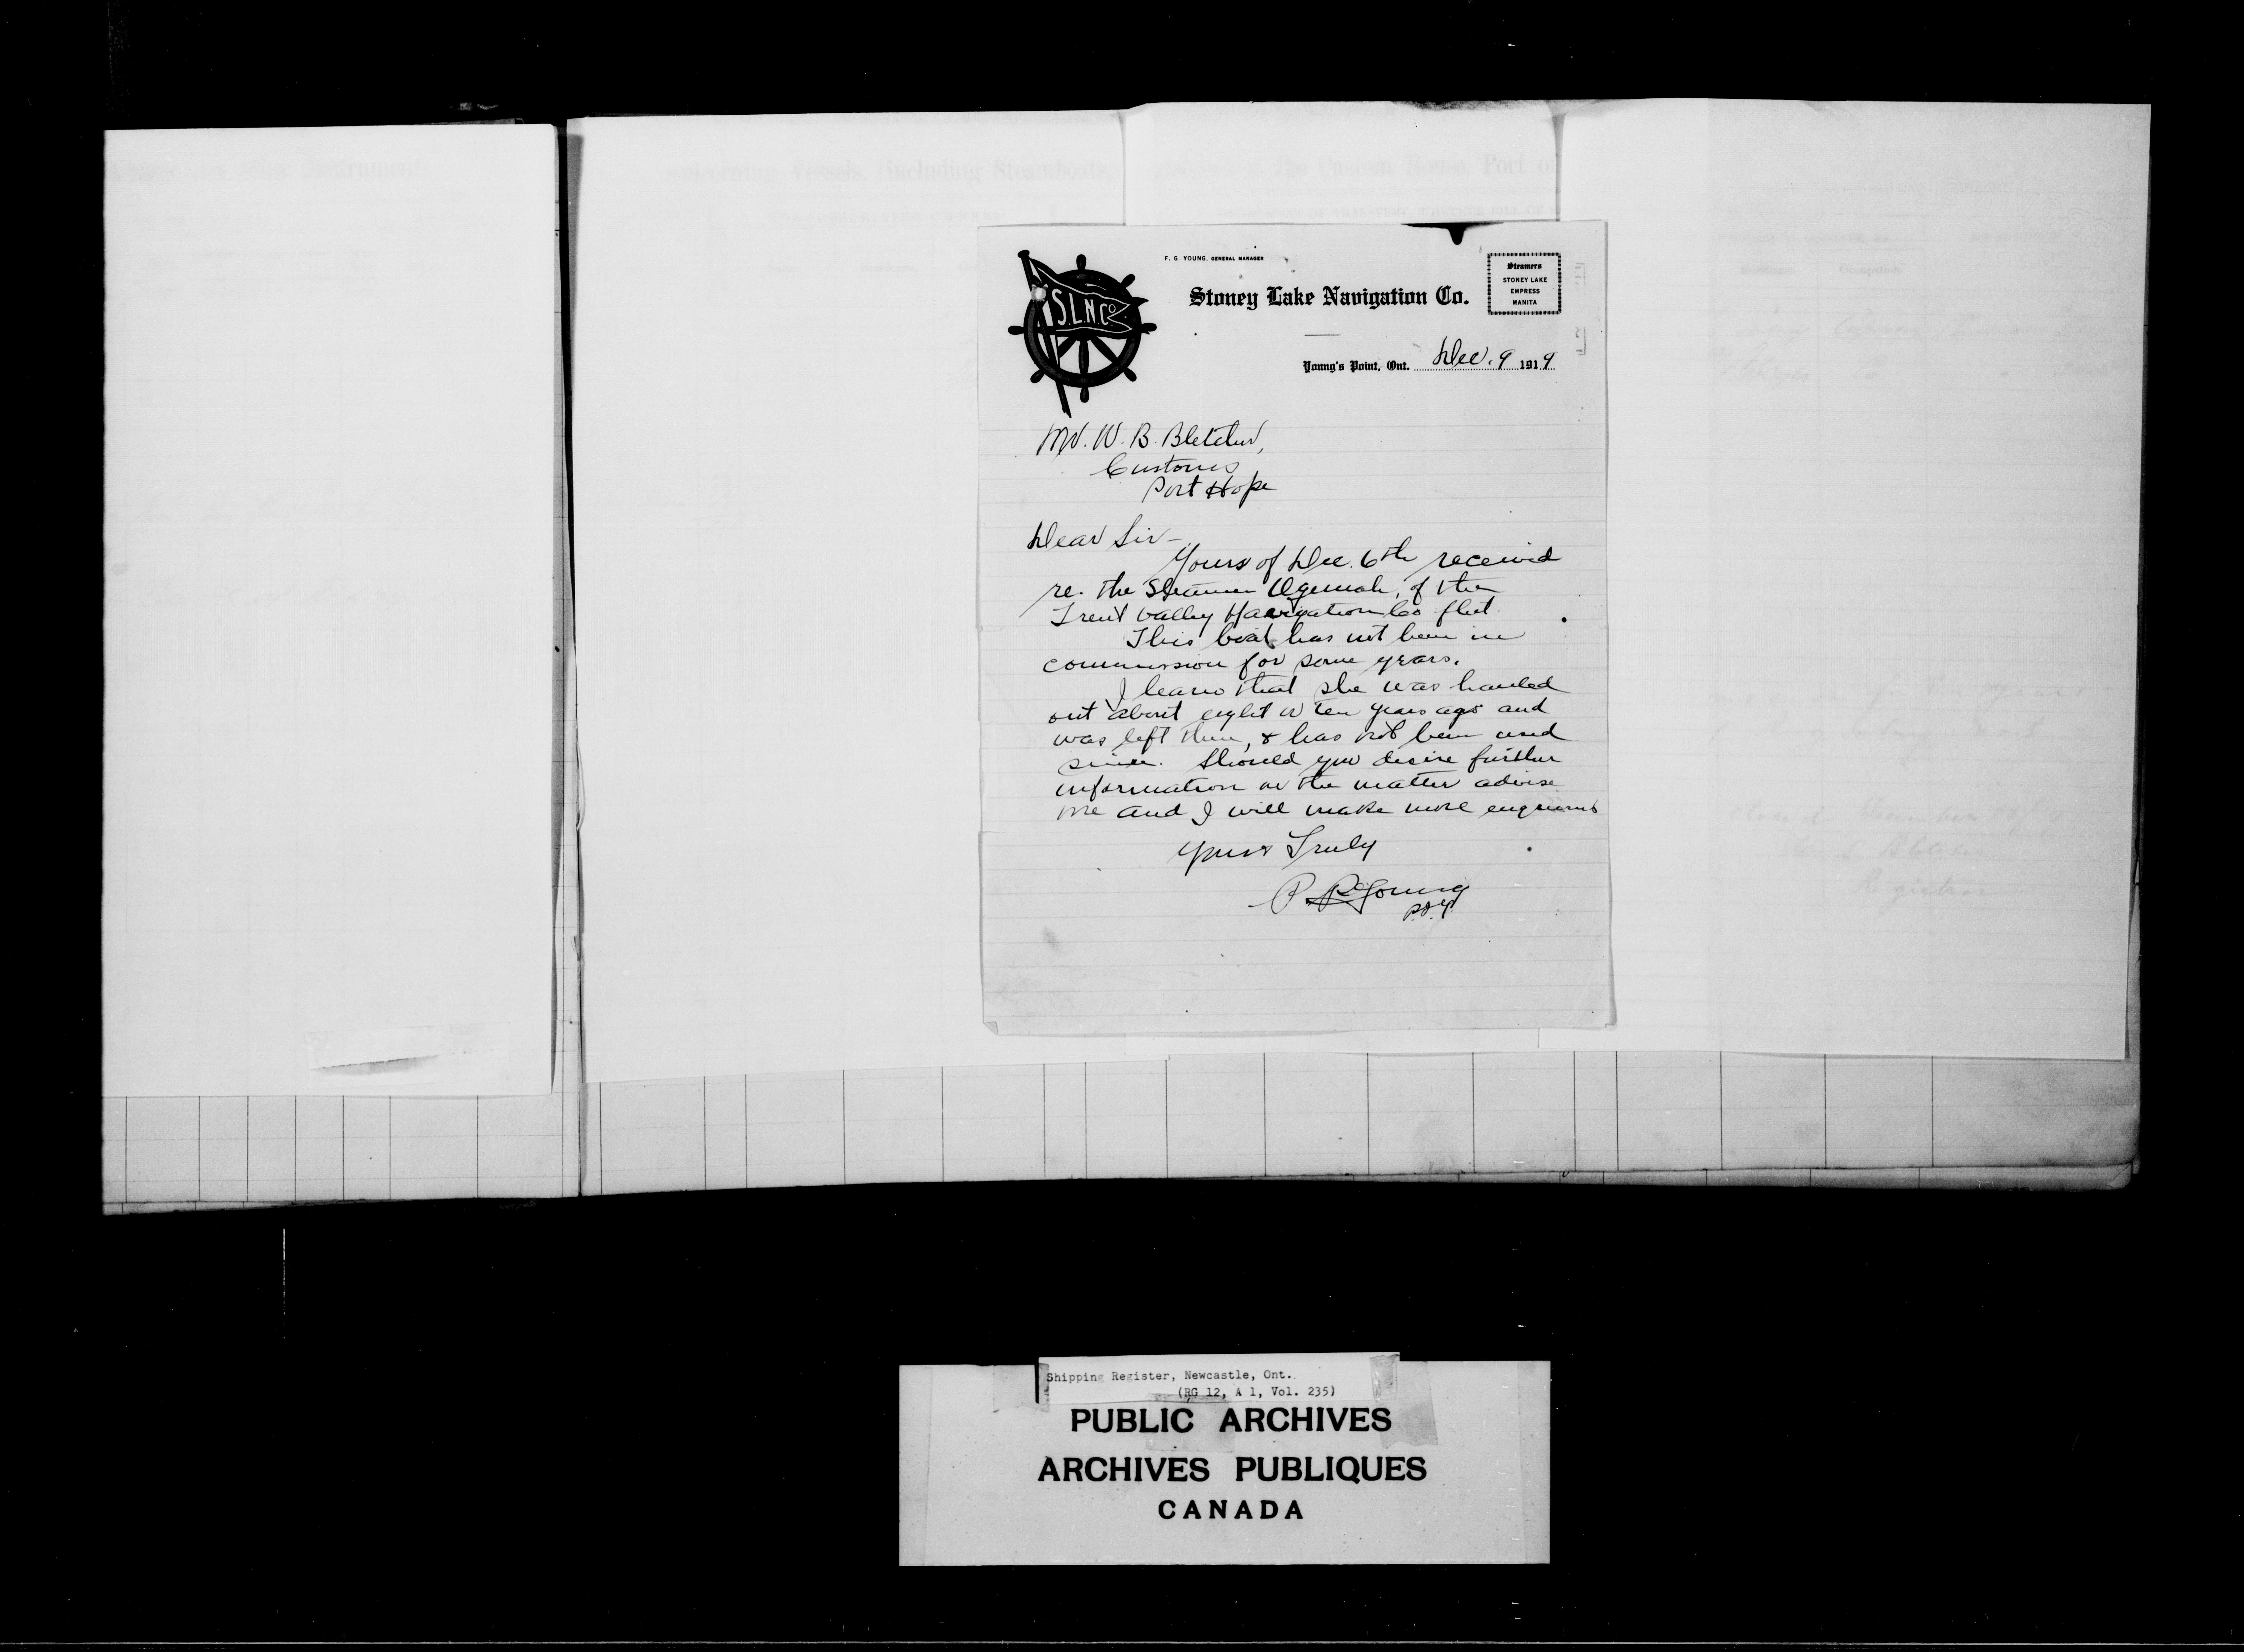 F. G. YOUNG, GENERAL MANAGER
S.L.N.Co.
Stoney Lake Navigation Co.
Steamers
STONEY LAKE
EMPRESS
MANITA
Young's Point, Ont. Dec. 9 1919
Mr. W. B. Bletcher,
Customs
Port Hope
Dear Sir –
Yours of Dec. 6th received
re. the Steamer Ogemah, of the
Trent Valley Navigation Co fleet.
This boat has not been in
commission for some years.
I learn that she was hauled
out about eight or ten years ago and
was left there, & has not been used
since. Should you desire further
information on the matter advise
me and I will make more enquiries
Yours Truly
P. P. Young
Shipping Register, Newcastle, Ont.
(RG 12, A 1, Vol. 235)
PUBLIC ARCHIVES
ARCHIVES PUBLIQUES
CANADA